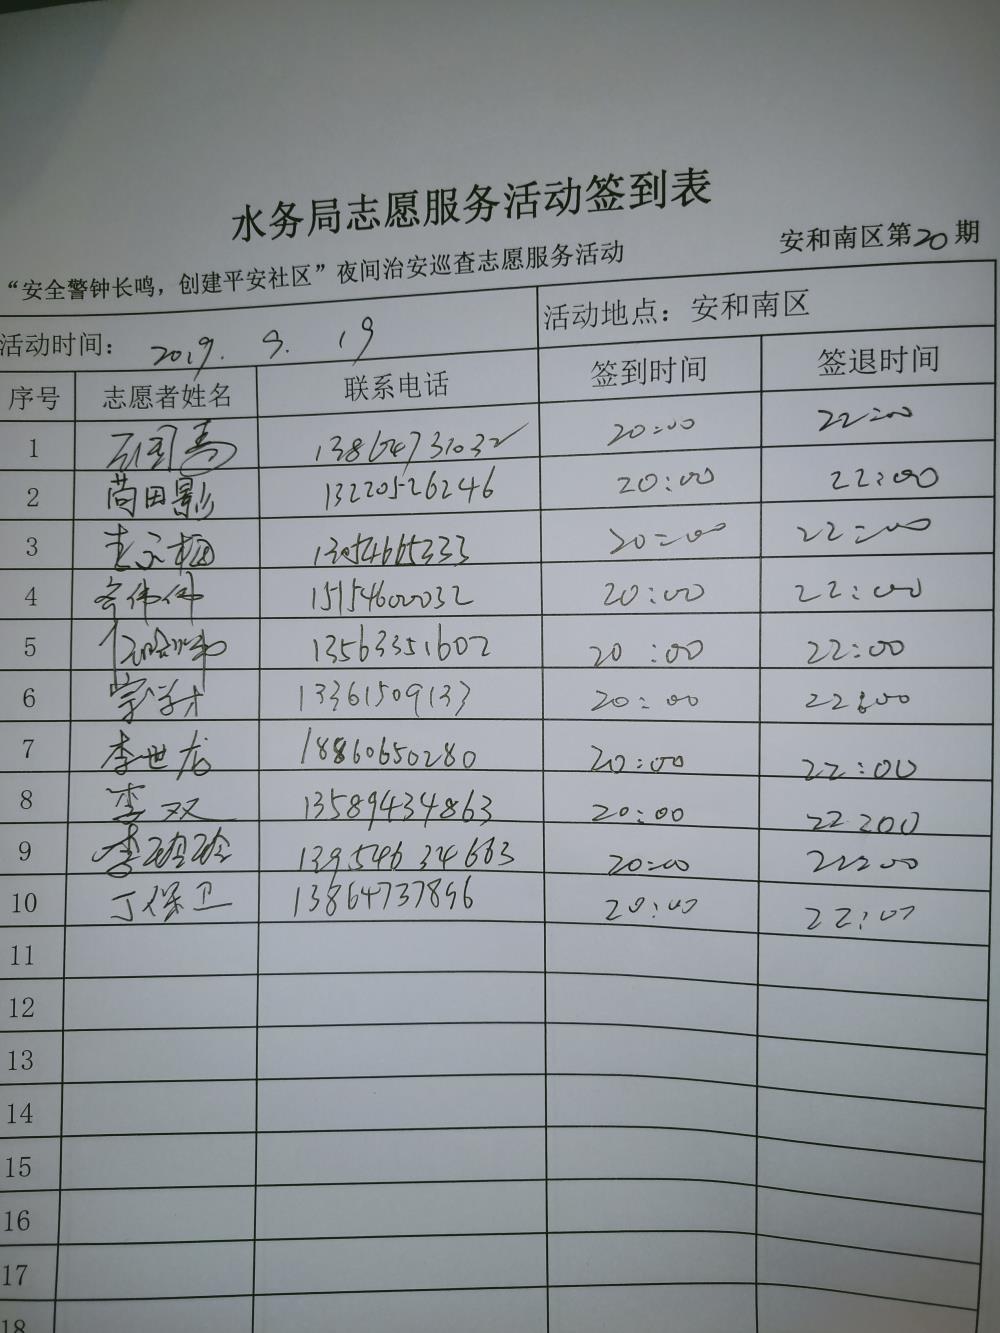 水务局志愿服务活动签到表
安和南区第20期
“安全警钟长鸣，创建平安社区”夜间治安巡查志愿服务活动
活动时间： 2019. 9. 19 活动地点：安和南区
序号 志愿者姓名 联系电话 签到时间 签退时间
1 13864731032 20:00 22:00
2 苘田影 13220526246 20:00 22:00
3 13054665333 20:00 22:00
4 伟伟 15154600032 20:00 22:00
5 13563351602 20:00 22:00
6 宗学才 13361509133 20:00 22:00
7 李世龙 18860650280 20:00 22:00
8 李双 13589434863 20:00 22:00
9 李玲玲 13954634663 20:00 22:00
10 丁保卫 13864737896 20:00 22:00
11
12
13
14
15
16
17
18